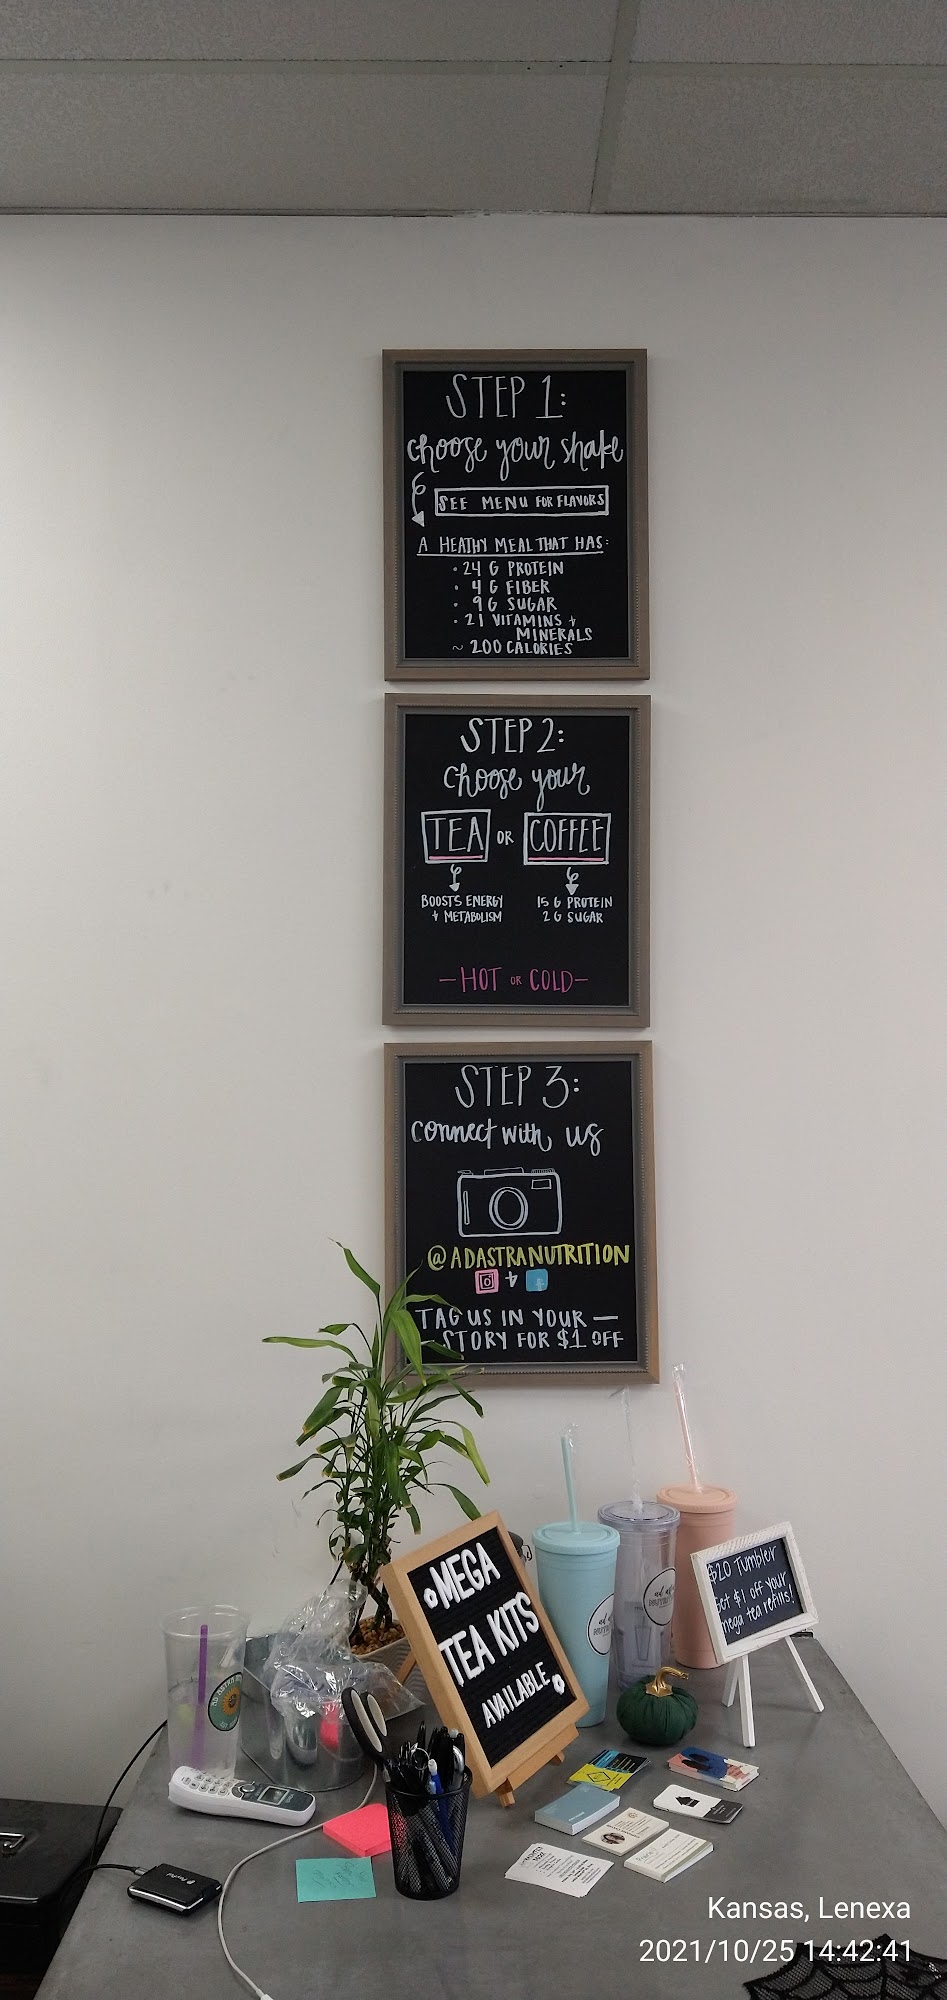 STEP 1:
choose your shake
SEE MENU FOR FLAVORS
A HEATHY MEAL THAT HAS:
• 24 G PROTEIN
• 4 G FIBER
• 9 G SUGAR
• 21 VITAMINS +
MINERALS
~ 200 CALORIES
STEP 2:
choose your
TEA OR COFFEE
BOOSTS ENERGY
+ METABOLISM
15 G PROTEIN
2 G SUGAR
- HOT OR COLD -
STEP 3:
connect with us
@ADASTRANUTRITION
+
TAG US IN YOUR —
STORY FOR $1 OFF
MEGA
TEA KITS
AVAILABLE
$20 Tumbler
Get $1 off your
mega tea refills!
PayPal
Kansas, Lenexa
2021/10/25 14:42:41